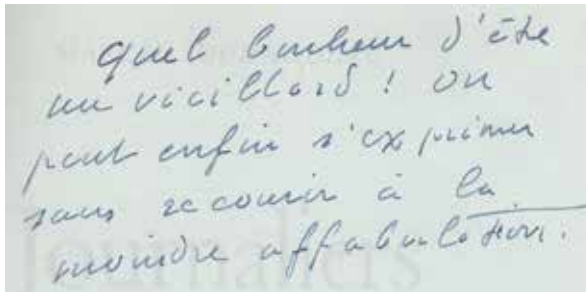 quel bonheur d'être
un vieillard ! on
peut enfin s'exprimer
sans recourir à la
moindre affabulation.
Journaliers